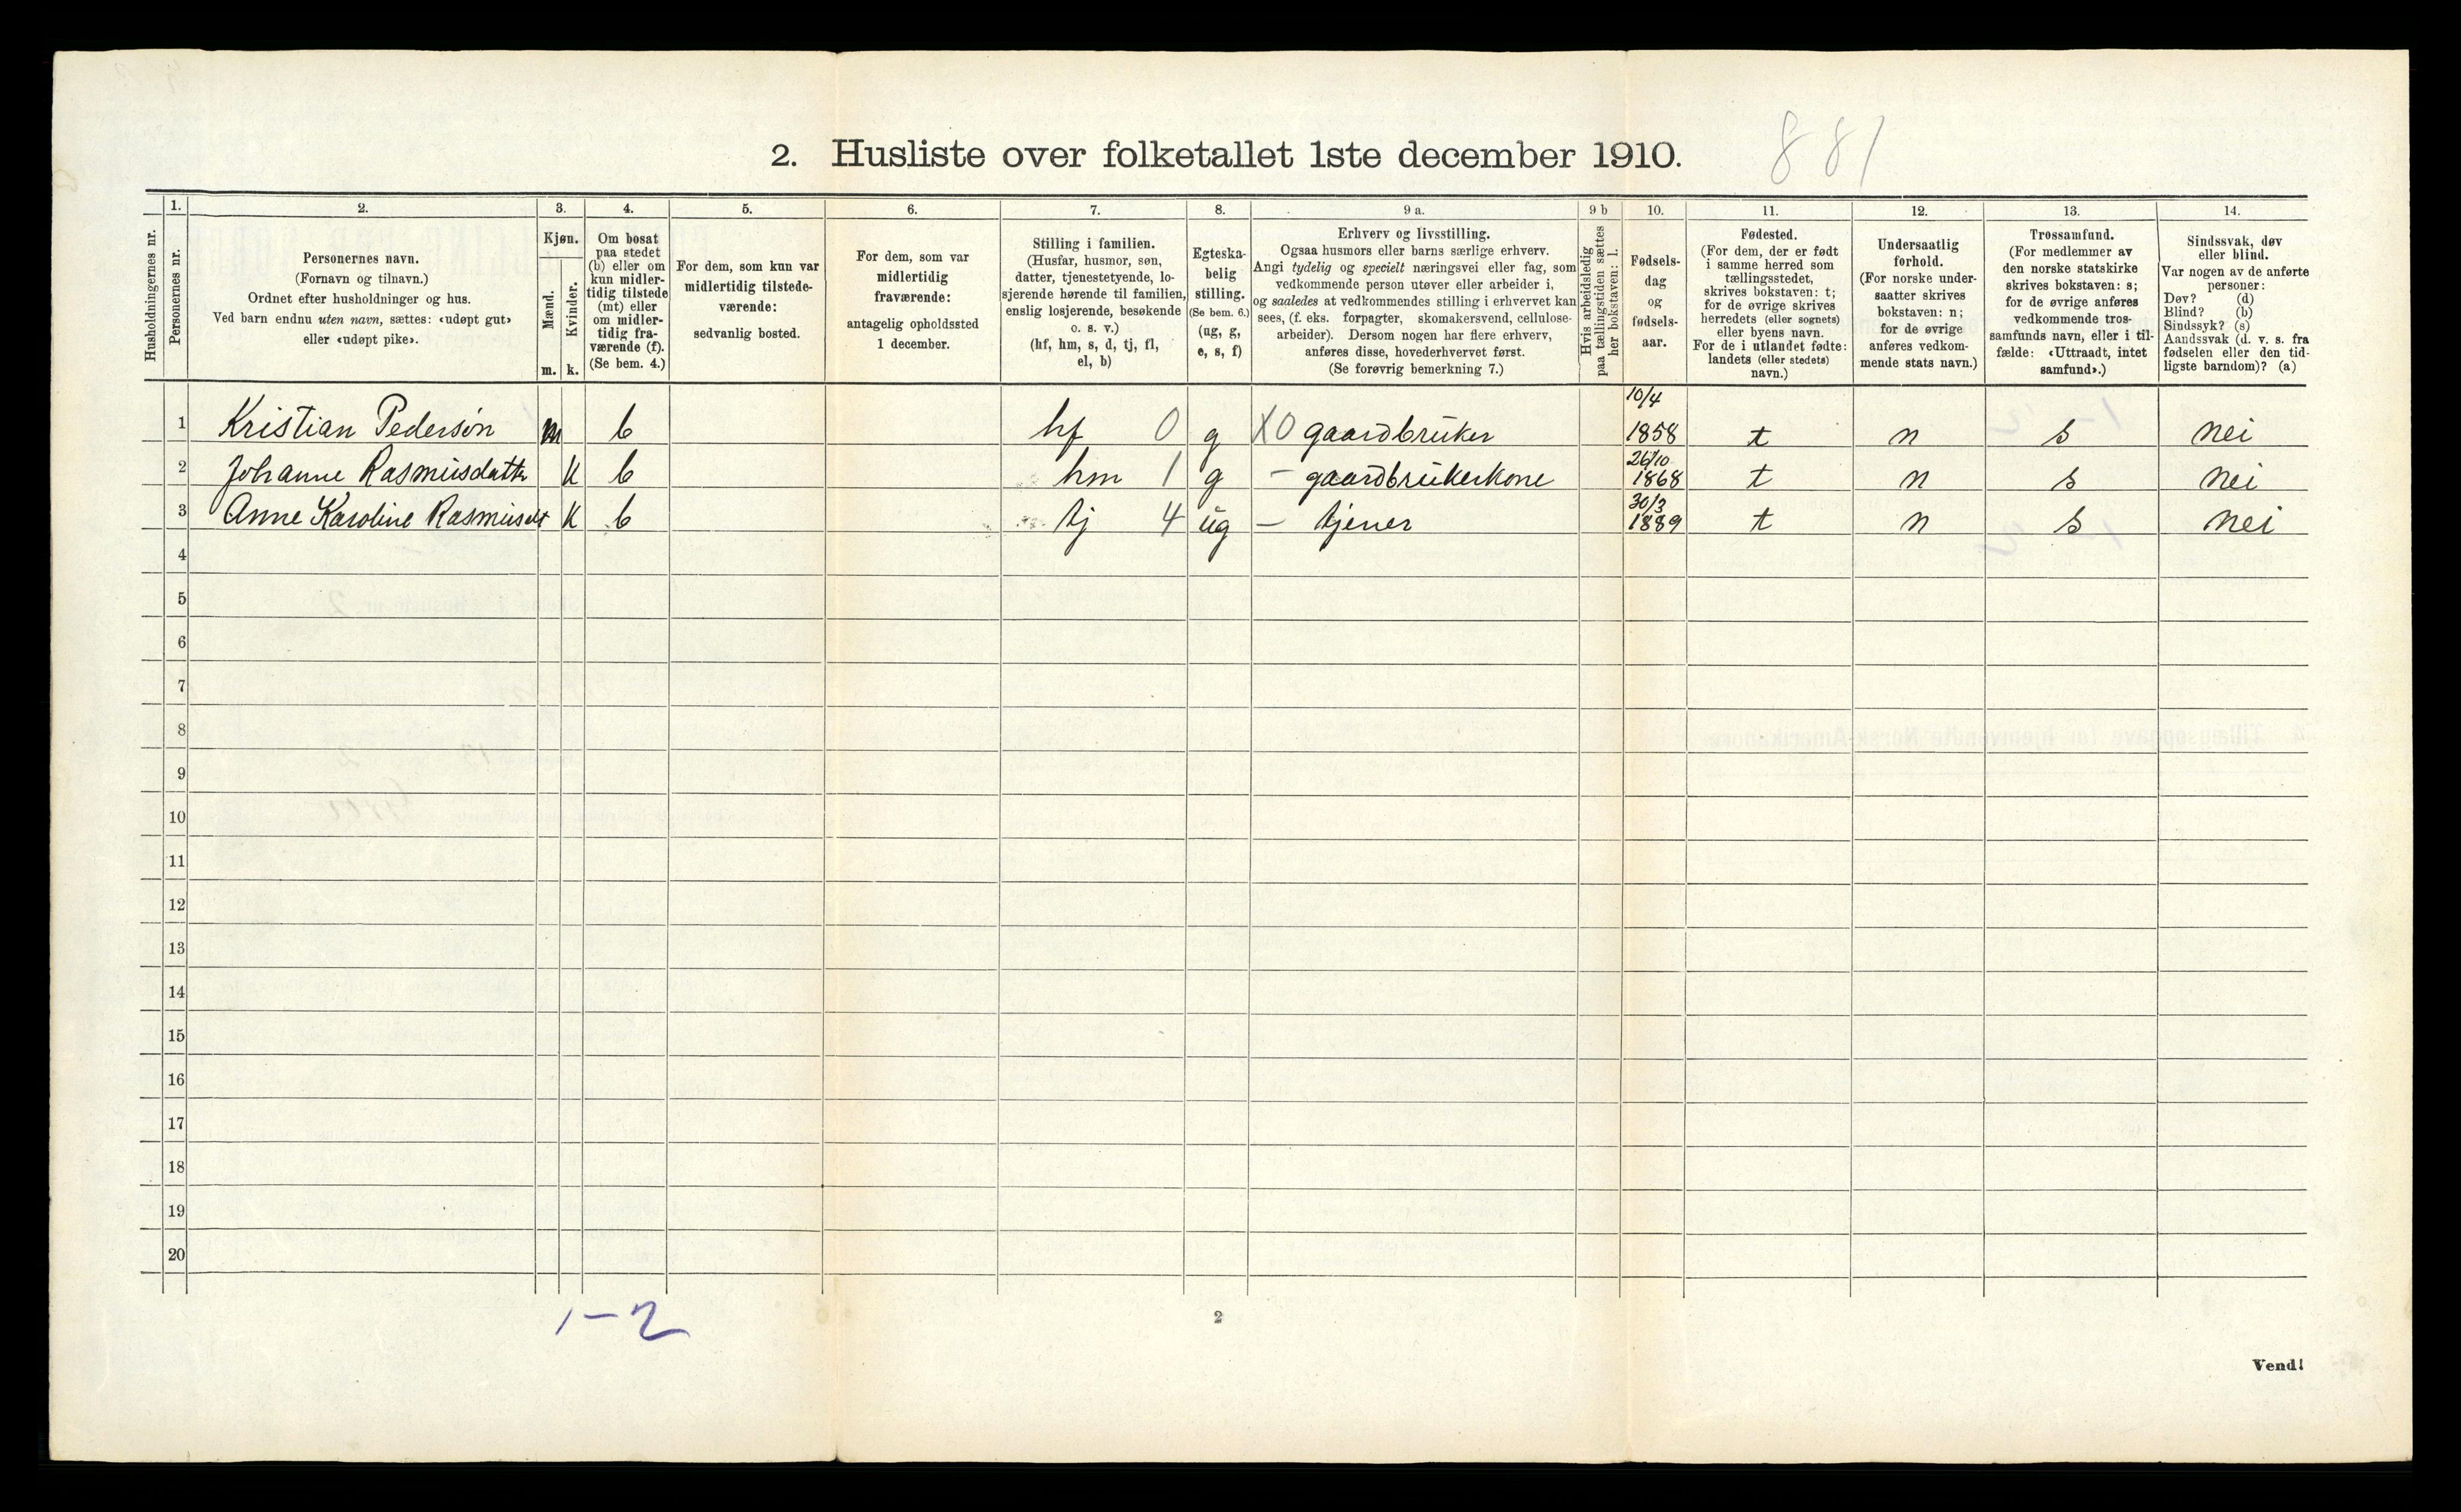 881
2. Husliste over folketallet 1ste december 1910.
1. 2. 3. 4. 5. 6. 7. 8. 9 a. 9 b 10. 11. 12. 13. 14.
Husholdningernes nr.
Personernes nr.
Personernes navn.
(Fornavn og tilnavn.)
Ordnet efter husholdninger og hus.
Ved barn endnu uten navn, sættes: «udøpt gut»
eller «udøpt pike».
Kjøn.
Mænd.
Kvinder.
m. k.
Om bosat
paa stedet
(b) eller om
kun midler-
tidig tilstede
(mt) eller
om midler-
tidig fra-
værende (f).
(Se bem. 4.)
For dem, som kun var
midlertidig tilstede-
værende:
sedvanlig bosted.
For dem, som var
midlertidig
fraværende:
antagelig opholdssted
1 december.
Stilling i familien.
(Husfar, husmor, søn,
datter, tjenestetyende, lo-
sjerende hørende til familien,
enslig losjerende, besøkende
o. s. v.)
(hf, hm, s, d, tj, fl,
el, b)
Egteska-
belig
stilling.
(Se bem. 6.)
(ug, g,
e, s, f)
Erhverv og livsstilling.
Ogsaa husmors eller barns særlige erhverv.
Angi tydelig og specielt næringsvei eller fag, som
vedkommende person utøver eller arbeider i,
og saaledes at vedkommendes stilling i erhvervet kan
sees, (f. eks. forpagter, skomakersvend, cellulose-
arbeider). Dersom nogen har flere erhverv,
anføres disse, hovederhvervet først.
(Se forøvrig bemerkning 7.)
Hvis arbeidsledig
paa tællingstiden sættes
her bokstaven: l.
Fødsels-
dag
og
fødsels-
aar.
Fødested.
(For dem, der er født
i samme herred som
tællingsstedet,
skrives bokstaven: t;
for de øvrige skrives
herredets (eller sognets)
eller byens navn.
For de i utlandet fødte:
landets (eller stedets)
navn.)
Undersaatlig
forhold.
(For norske under-
saatter skrives
bokstaven: n;
for de øvrige
anføres vedkom-
mende stats navn.)
Trossamfund.
(For medlemmer av
den norske statskirke
skrives bokstaven: s;
for de øvrige anføres
vedkommende tros-
samfunds navn, eller i til-
fælde: «Uttraadt, intet
samfund».)
Sindssvak, døv
eller blind.
Var nogen av de anførte
personer:
Døv? (d)
Blind? (b)
Sindssyk? (s)
Aandssvak (d. v. s. fra
fødselen eller den tid-
ligste barndom)? (a)
1 Kristian Pedersøn m b hf 0 g X0 gaardbruker 10/4 1858 t n s nei
2 Johanne Rasmusdattr k b hm 1 g – gaardbrukerkone 26/10 1868 t n s nei
3 Anne Karoline Rasmusdt k b tj 4 ug – tjener 30/3 1889 t n s nei
4
5
6
7
8
9
10
11
12
13
14
15
16
17
18
19
20
1–2
2
Vend!